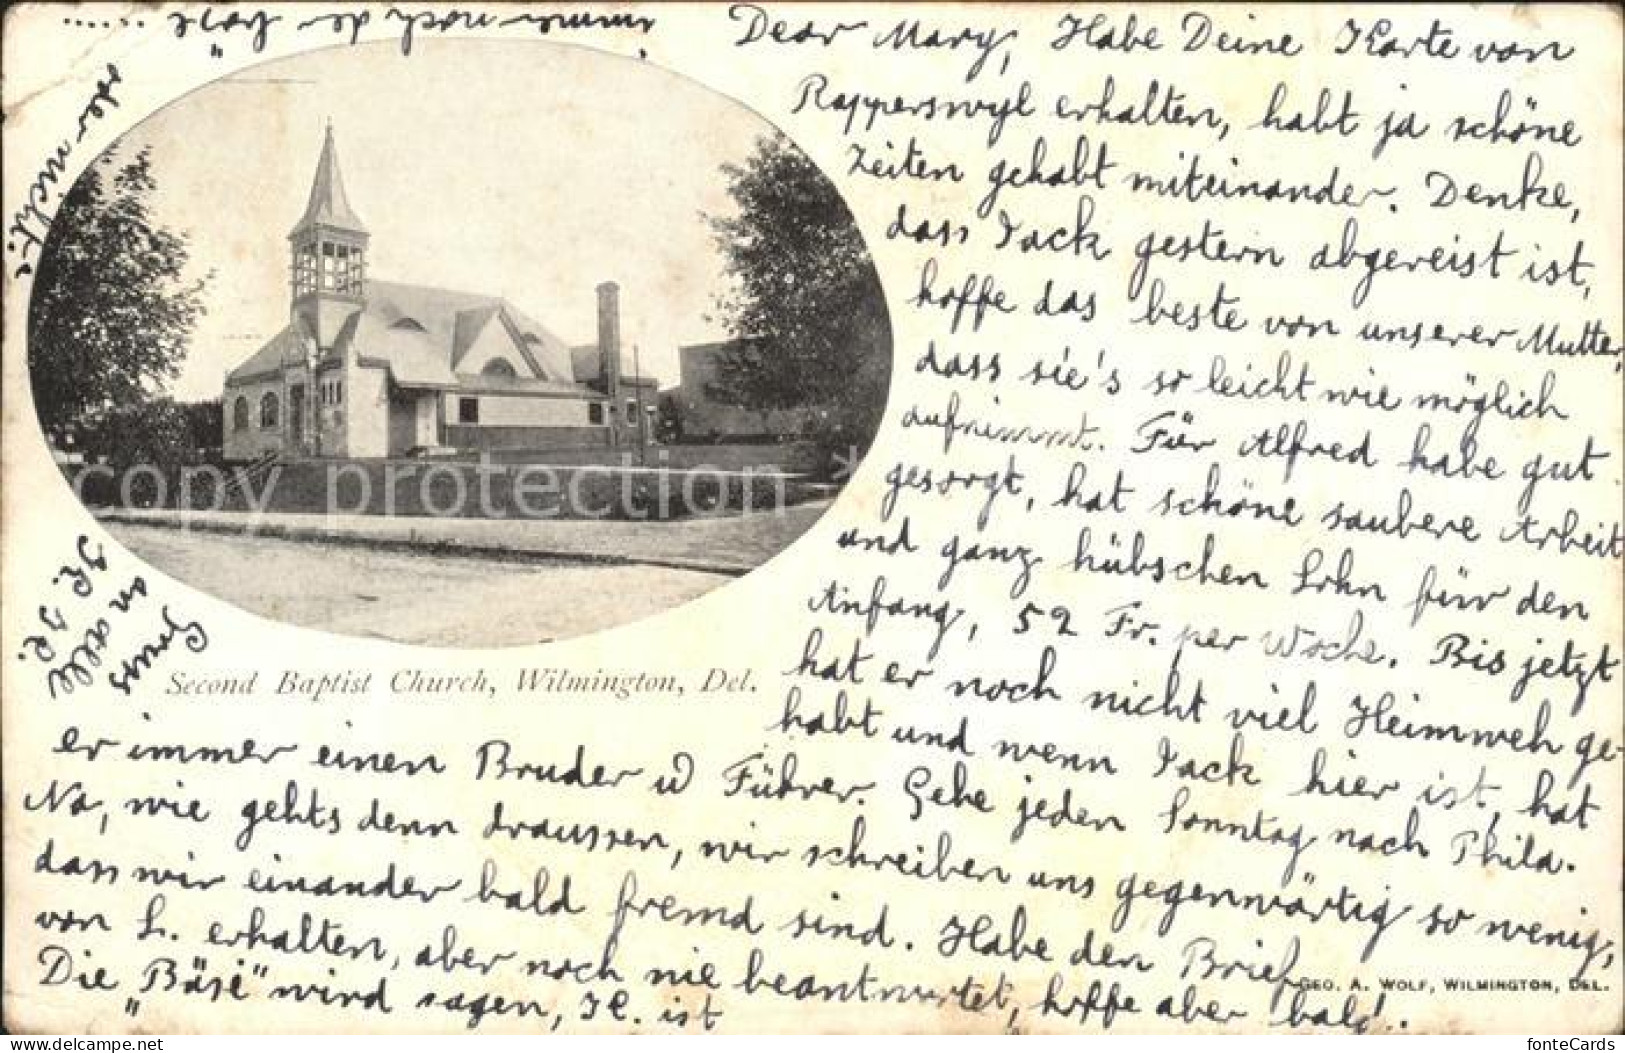 Dear Mary, Habe Deine Karte von
Rapperswyl erhalten, habt ja schöne
Zeiten gehabt miteinander. Denke,
dass Jack gestern abgereist ist,
hoffe das beste von unserer Mutter,
dass sie's so leicht wie möglich
aufnimmt. Für Alfred habe gut
gesorgt, hat schöne saubere Arbeit
und ganz hübschen Lohn für den
Anfang, 52 Fr. per Woche. Bis jetzt
hat er noch nicht viel Heimweh ge-
habt und wenn Jack hier ist, hat
er immer einen Bruder u Führer. Gehe jeden Sonntag nach Phila.
Na, wie gehts denn draussen, wir schreiben uns gegenwärtig so wenig,
dass wir einander bald fremd sind. Habe den Brief
von L. erhalten, aber noch nie beantwortet, hoffe aber bald!.
Die „Bäsi" wird sagen, K. ist
immer noch der
oder nicht?
Gruss
an alle
Second Baptist Church, Wilmington, Del.
GEO. A. WOLF, WILMINGTON, DEL.
copy protection *
https://www.delcampe.net/
fonteCards